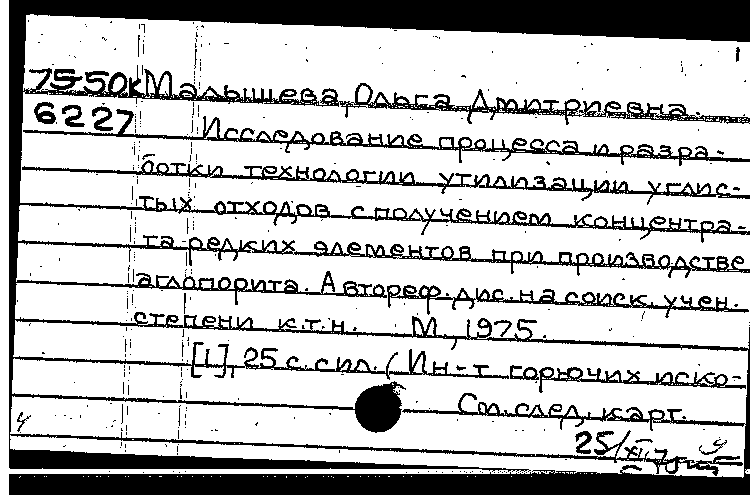 75-50к Малышева, Ольга Дмитриевна.
6227 Исследование процесса и разра-
ботки технологии утилизации углис-
тых отходов с получением концентра-
та редких элементов при производстве
аглопорита. Автореф. дис. на соиск. учен.
степени к.т.н. М., 1975.
[1], 25 с. с ил. (Ин-т горючих иско-
См. след. карт.
25/XII